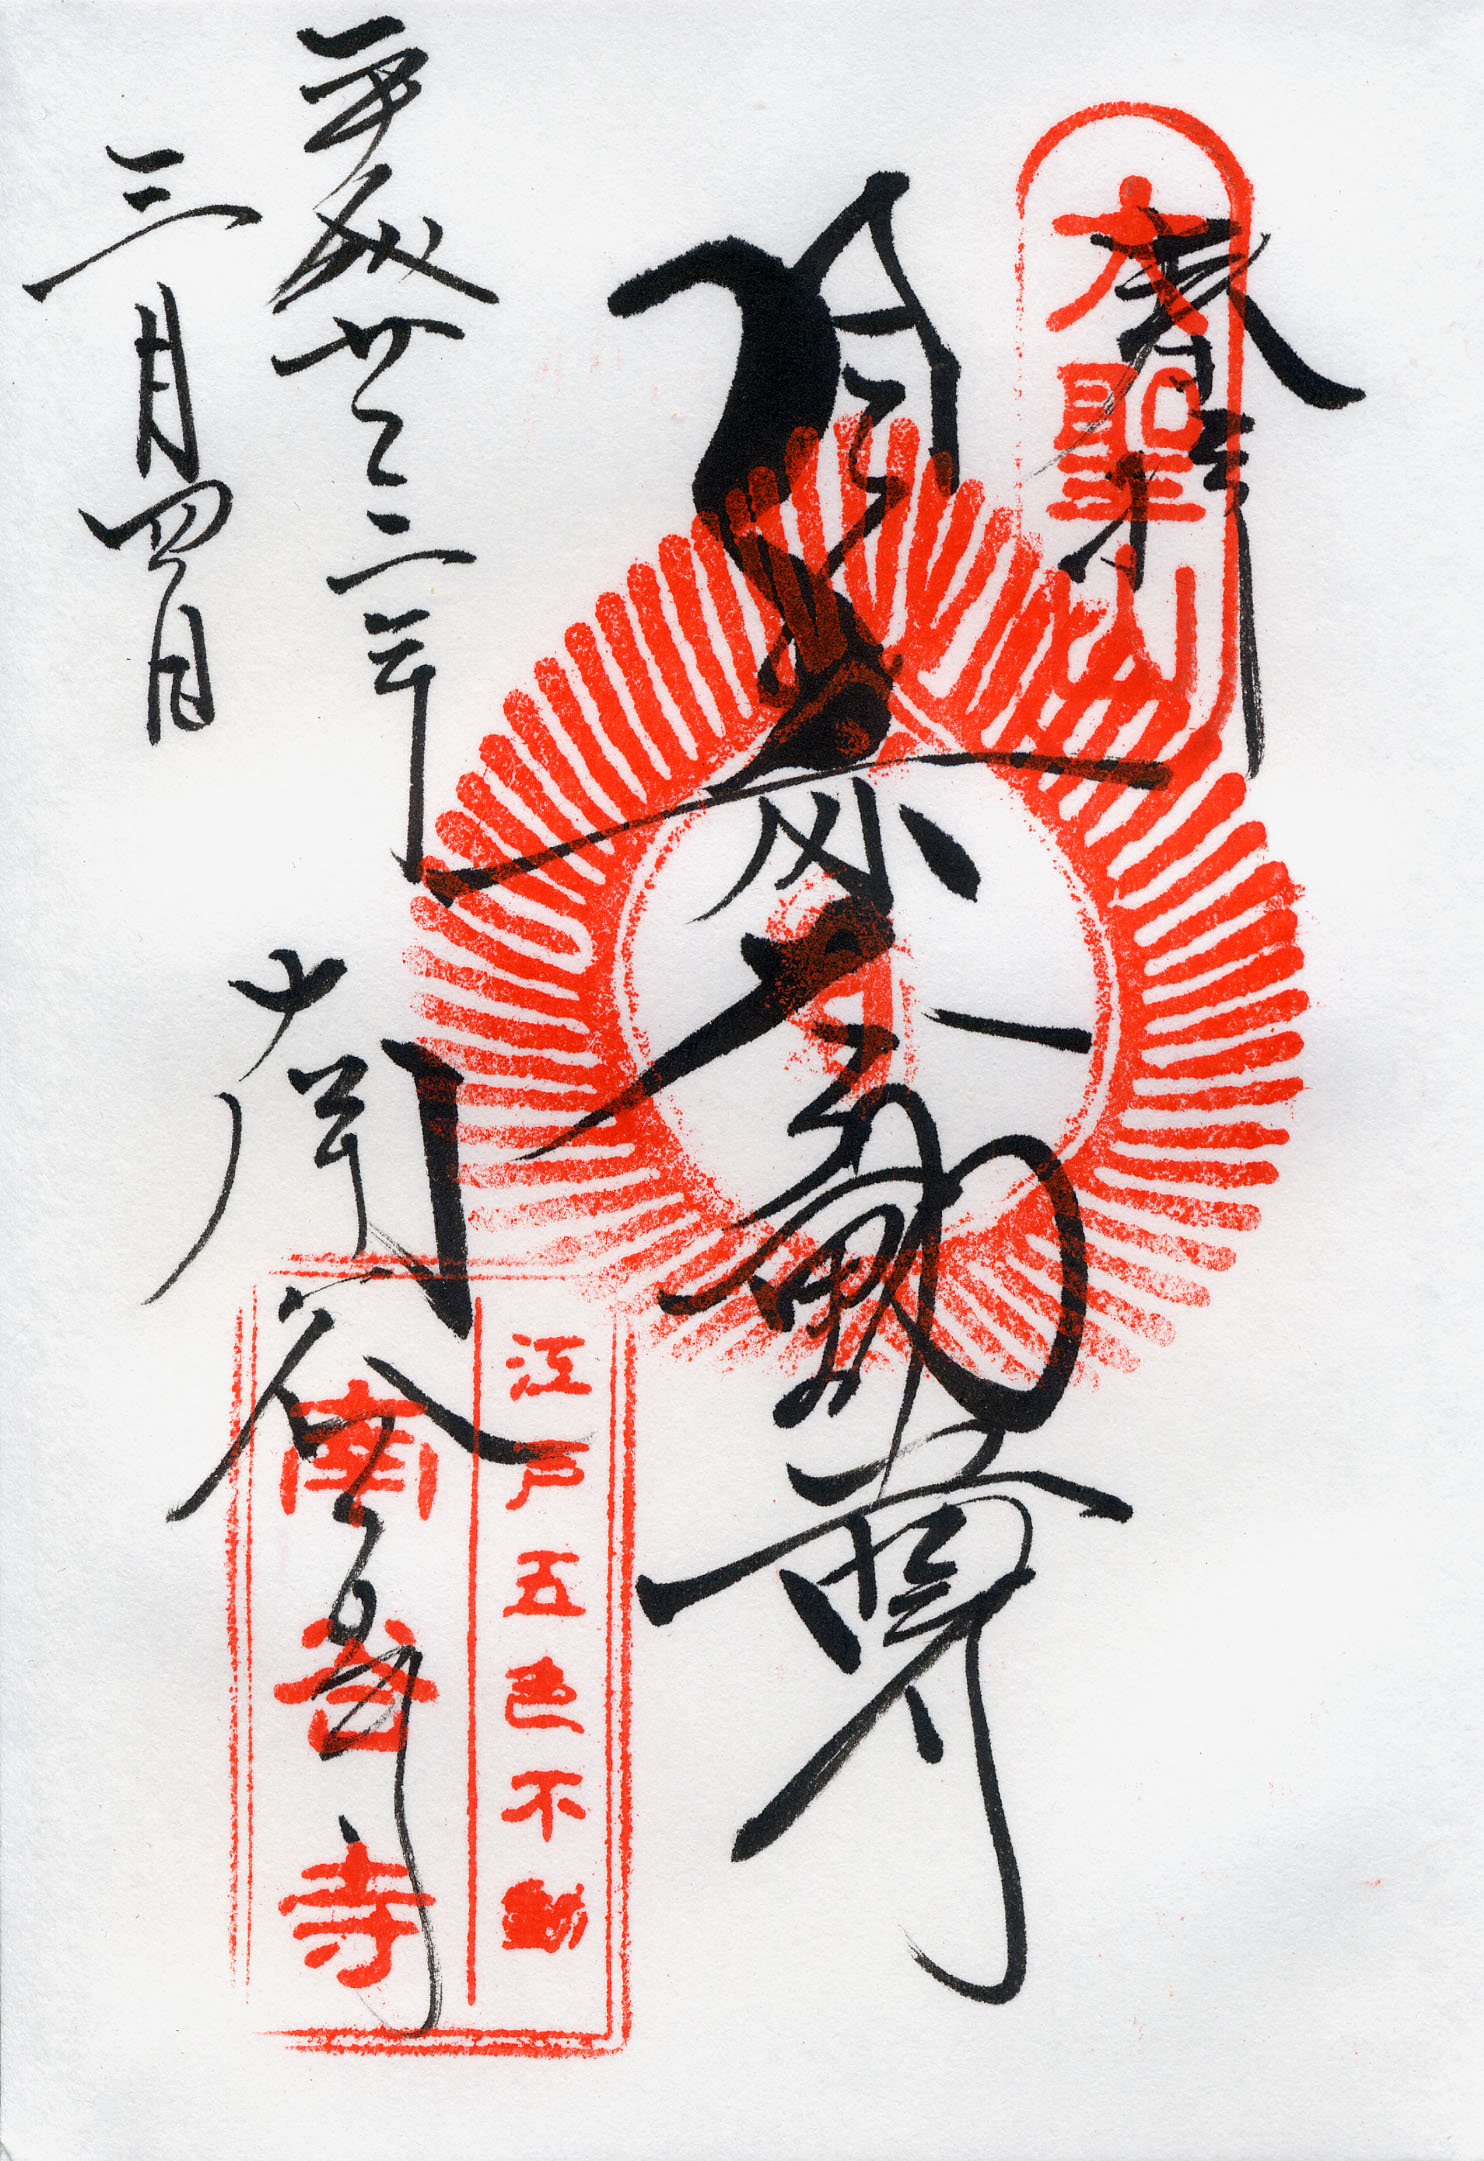 奉拝
大聖山
目赤不動尊
江戸五色不動
南谷寺
平成廿二年
三月四日
南谷寺